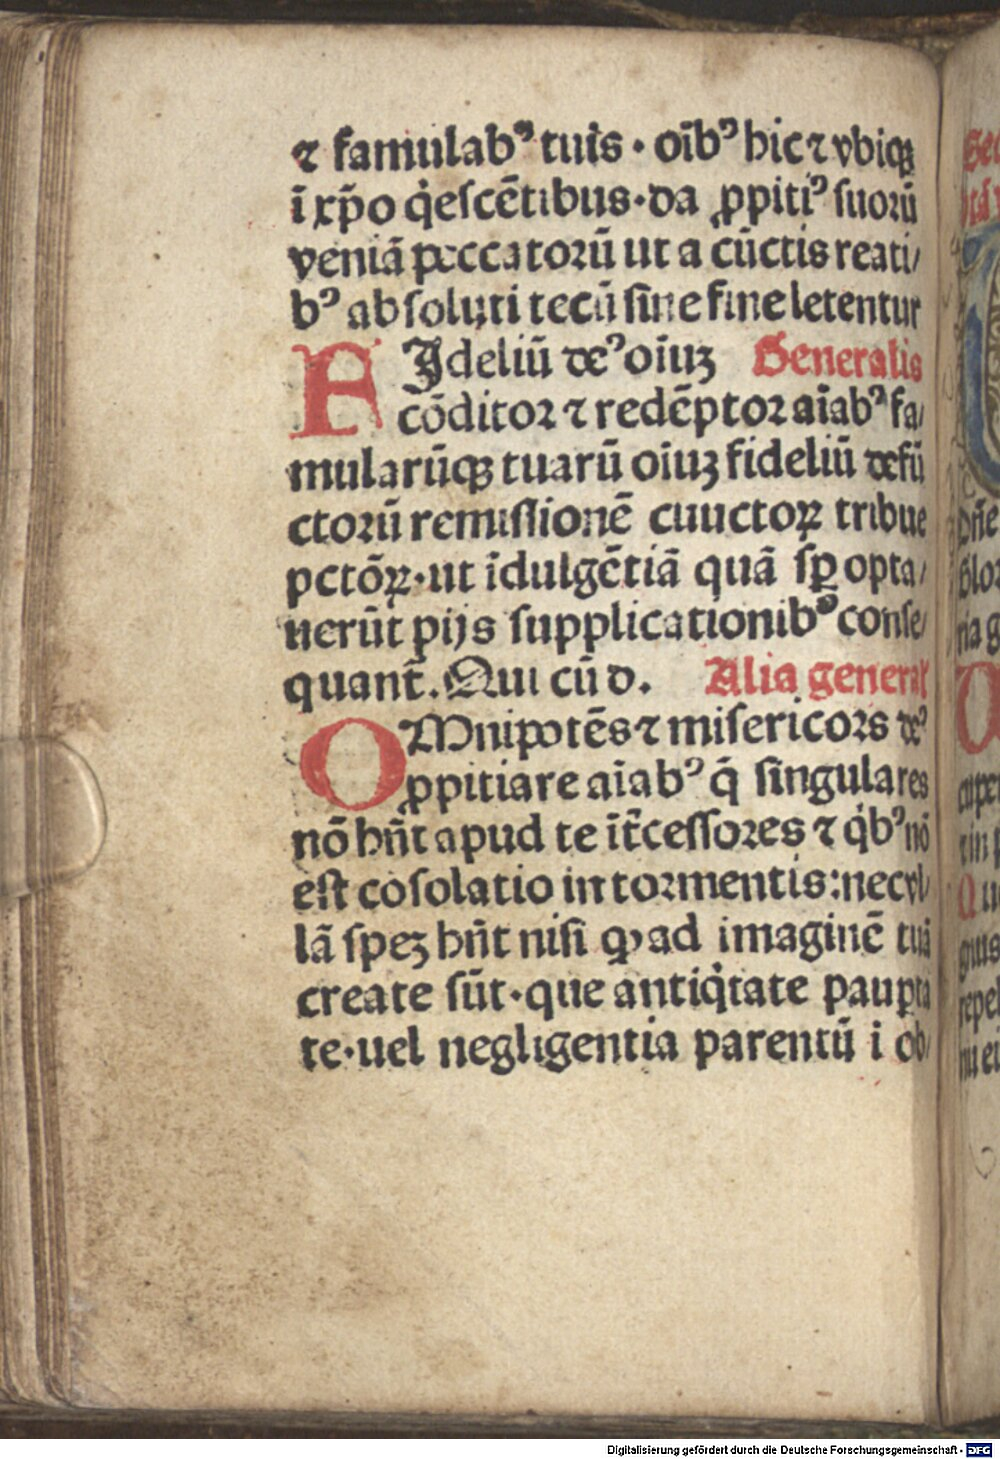 ⁊ famulabꝰ tuis · oı̄bꝰ hic ⁊ vbiqꝫ
ī xp̄o q̇escētibus · da ꝓpitiꝰ suoꝝū
veniā peccatoꝛū ut a cūctis reati/
bꝰ absoluti tecū sine fine letentur
FIdeliū deꝰ oīuꝫ Generalis
cōditoꝛ ⁊ redēptoꝛ aı̄abꝰ fa/
mularūqꝫ tuarū oīuꝫ fideliū defū
ctoꝛū remissionē cuuctoꝝ tribue
pctōꝝ · ut īdulgētiā quā sꝑ opta/
nerūt pijs supplicationibꝰ conse/
quant̄. Qui cū d. Alia general
OMnipotēs ⁊ misericoꝛs deꝰ
ꝓpitiare aı̄abꝰ q̄ singulares
nō hn̄t apud te īt̄cessoꝛes ⁊ q̇bꝰ nō
est cosolatio in toꝛmentis: nec vl/
lā speꝫ hn̄t nisi ꝙ ad imaginē tuā
create sūt · que antiq̇tate pauꝑta
te · uel negligentia parentū i ob/
Digitalisierung gefördert durch die Deutsche Forschungsgemeinschaft - DFG